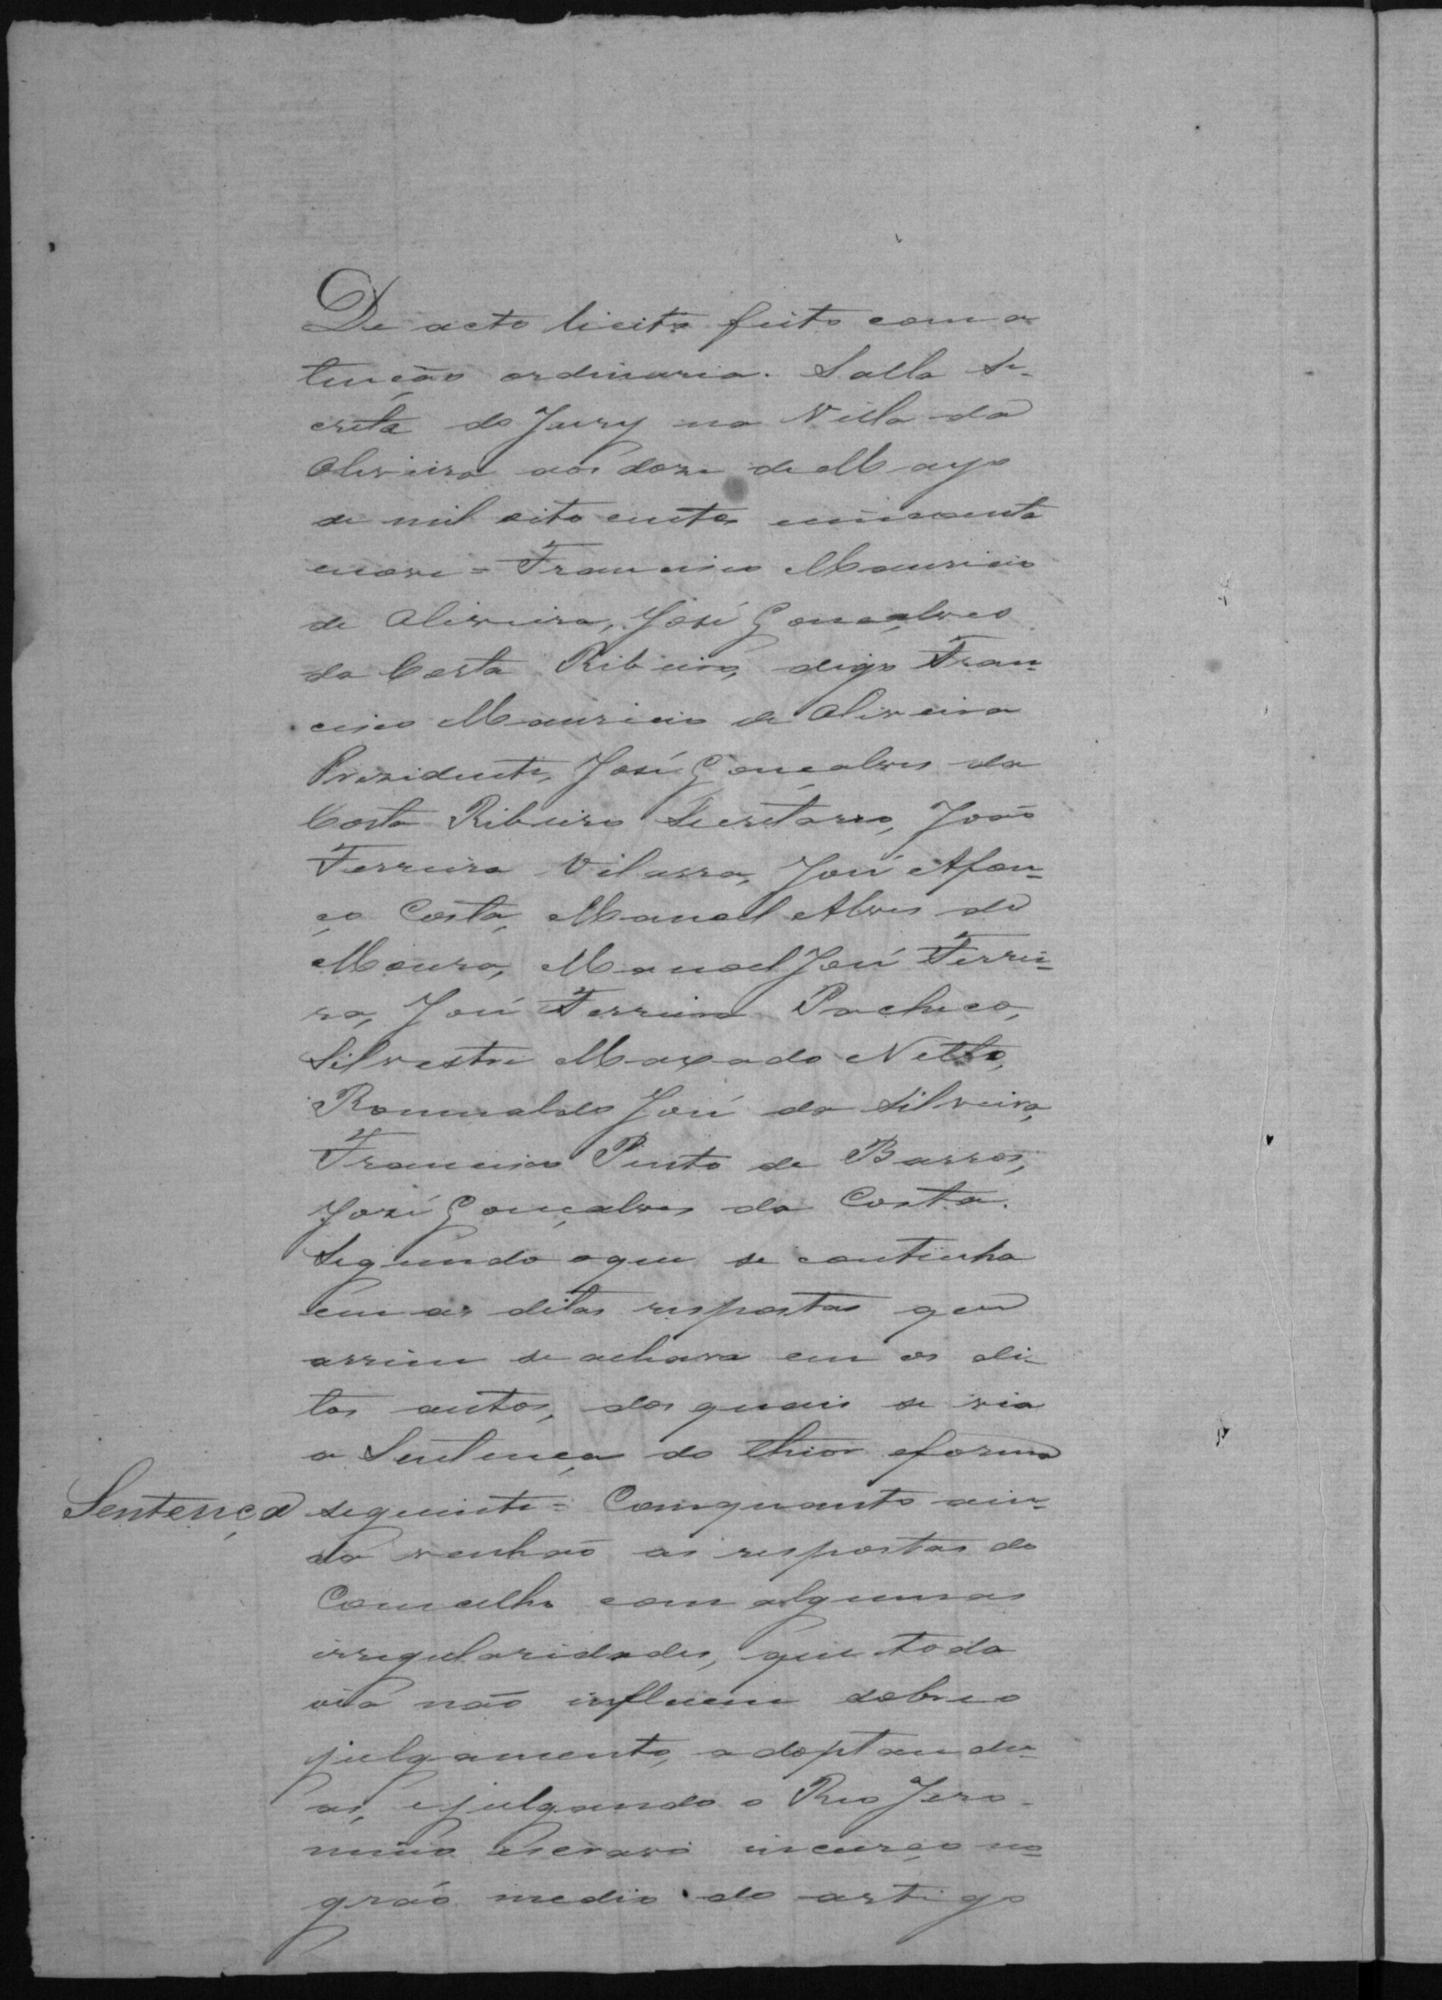 De acto licito feito com a
tenção ordinaria. Salla Se-
creta do Jury na Villa da
Oliveira aos doze de Mayo
de mil oito centos cincoenta
enove = Francisco Mauricio
de Oliveira, José Gonçalves
da Costa Ribeiro, digo Fran-
cisco Mauricio de Oliveira
Prezidente, José Gonçalves da
Costa Ribeiro Secretario, João
Ferreira Vilassa, José Afon-
ço Costa, Manoel Alves de
Moura, Manoel José Ferrei-
ra, José Ferreira Pacheco,
Silvestre Maxado Netto,
Romualdo José da Silveira,
Francisco Pinto de Barros,
José Gonçalves da Costa.
Segundo oque se continha
em as ditas respostas que
assim se achava em os di-
tos autos, dos quais se via
a Sentença do thior eforma
Sentença seguinte = Comquanto ain-
da venhão as respostas do
Concelho com algumas
irregularidades, que toda
via não influem sobre o
julgamento, adoptando-
as, ejulgando o Reo Jero-
nimo escravo incurço no
gráo medio do artigo